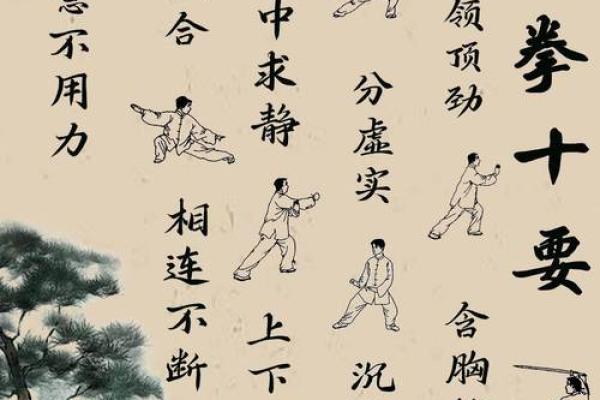 拳十要
领顶劲
含胸
分虚实
沉
中求静
上下
合
相连不断
不用力